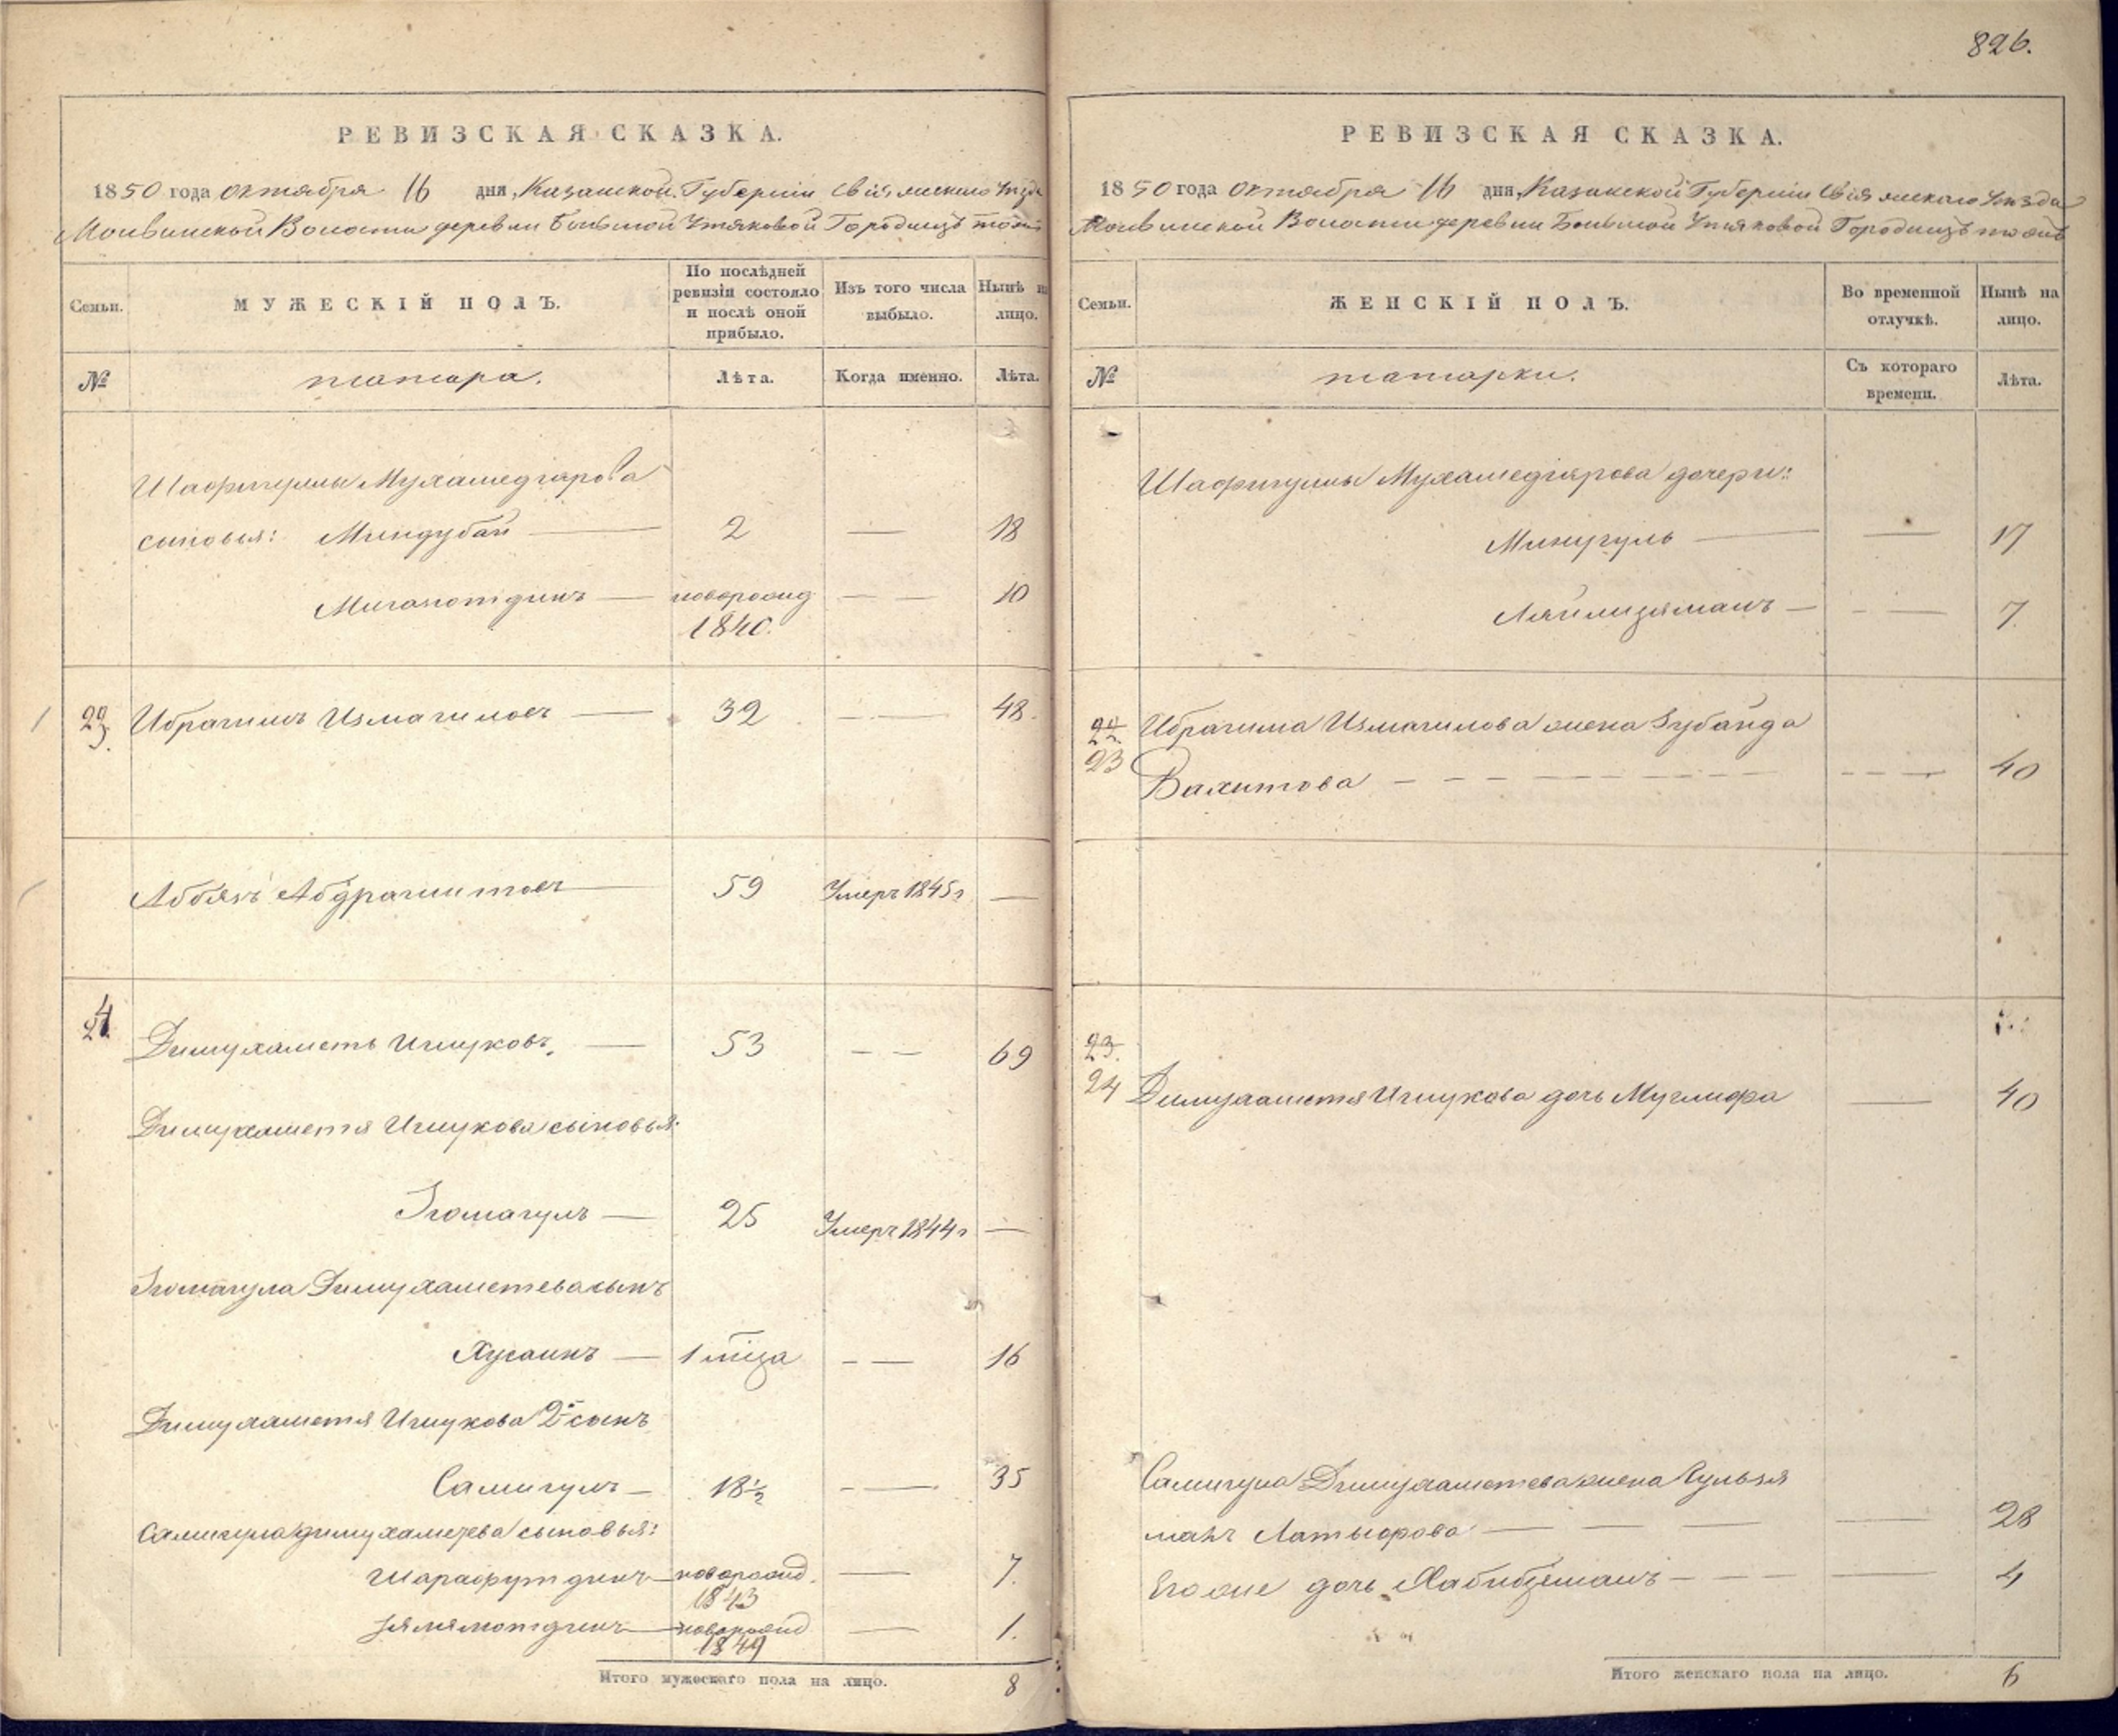 826.
РЕВИЗСКАЯ СКАЗКА.
1850 года октября 16 дня, Казанской Губернии Свіяжскаго Уѣзда
Молвинской Волости деревни Большой Утяковой Городищъ тожъ
Семьи.
МУЖЕСКІЙ ПОЛЪ.
По послѣдней
ревизіи состояло
и послѣ оной
прибыло.
Изъ того числа
выбыло.
Нынѣ на
лицо.
№
татара.
Лѣта.
Когда именно.
Лѣта.
Шафигуллы Мухамедіярова
сыновья: Миндубай — 2 — 18
Мигазотдинъ — новорожд — — 10
1840.
23. Ибрагимъ Измагиловъ — 32 — — 48.
Аббязъ Абдрашитовъ — 59 Умеръ 1845 г —
24 Димухаметъ Ишмуковъ, — 53 — — 69
Димухаметя Ишмукова сыновья:
Ягомагулъ — 25 Умеръ 1844 г —
Ягомагула Димухаметева сынъ
Хусаинъ — 1 мѣсца — — 16
Димухаметя Ишмукова 2й сынъ
Самигулъ — 18 1/2 — — 35
Самигула Димухаметева сыновья:
Шарафутдинъ — новорожд. — 7.
1843
Зямямотдинъ — новорожд — 1.
1849
Итого мужескаго пола на лицо. 8
РЕВИЗСКАЯ СКАЗКА.
1850 года Октября 16 дня, Казанской Губерніи Свіяжскаго Уѣзда
Молвинской Волости деревни Большой Утяковой Городищъ тожъ
Семьи.
ЖЕНСКІЙ ПОЛЪ.
Во временной
отлучкѣ.
Нынѣ на
лицо.
№
татарки.
Съ котораго
времени.
Лѣта.
Шафигуллы Мухамедіярова дочери:
Минугуль — — 17
Ляйлизяманъ — — — 7
22 Ибрагима Измагилова жена Зубайда
23 Вахитова — — — — — — 40
23.
24 Димухаметя Ишмукова дочь Муглифа — 40
Самигула Димухаметева жена Гульзя
манъ Латыфова — — — — 28
Его же дочь Хабибзяманъ — — — — 4
Итого женскаго пола на лицо. 6